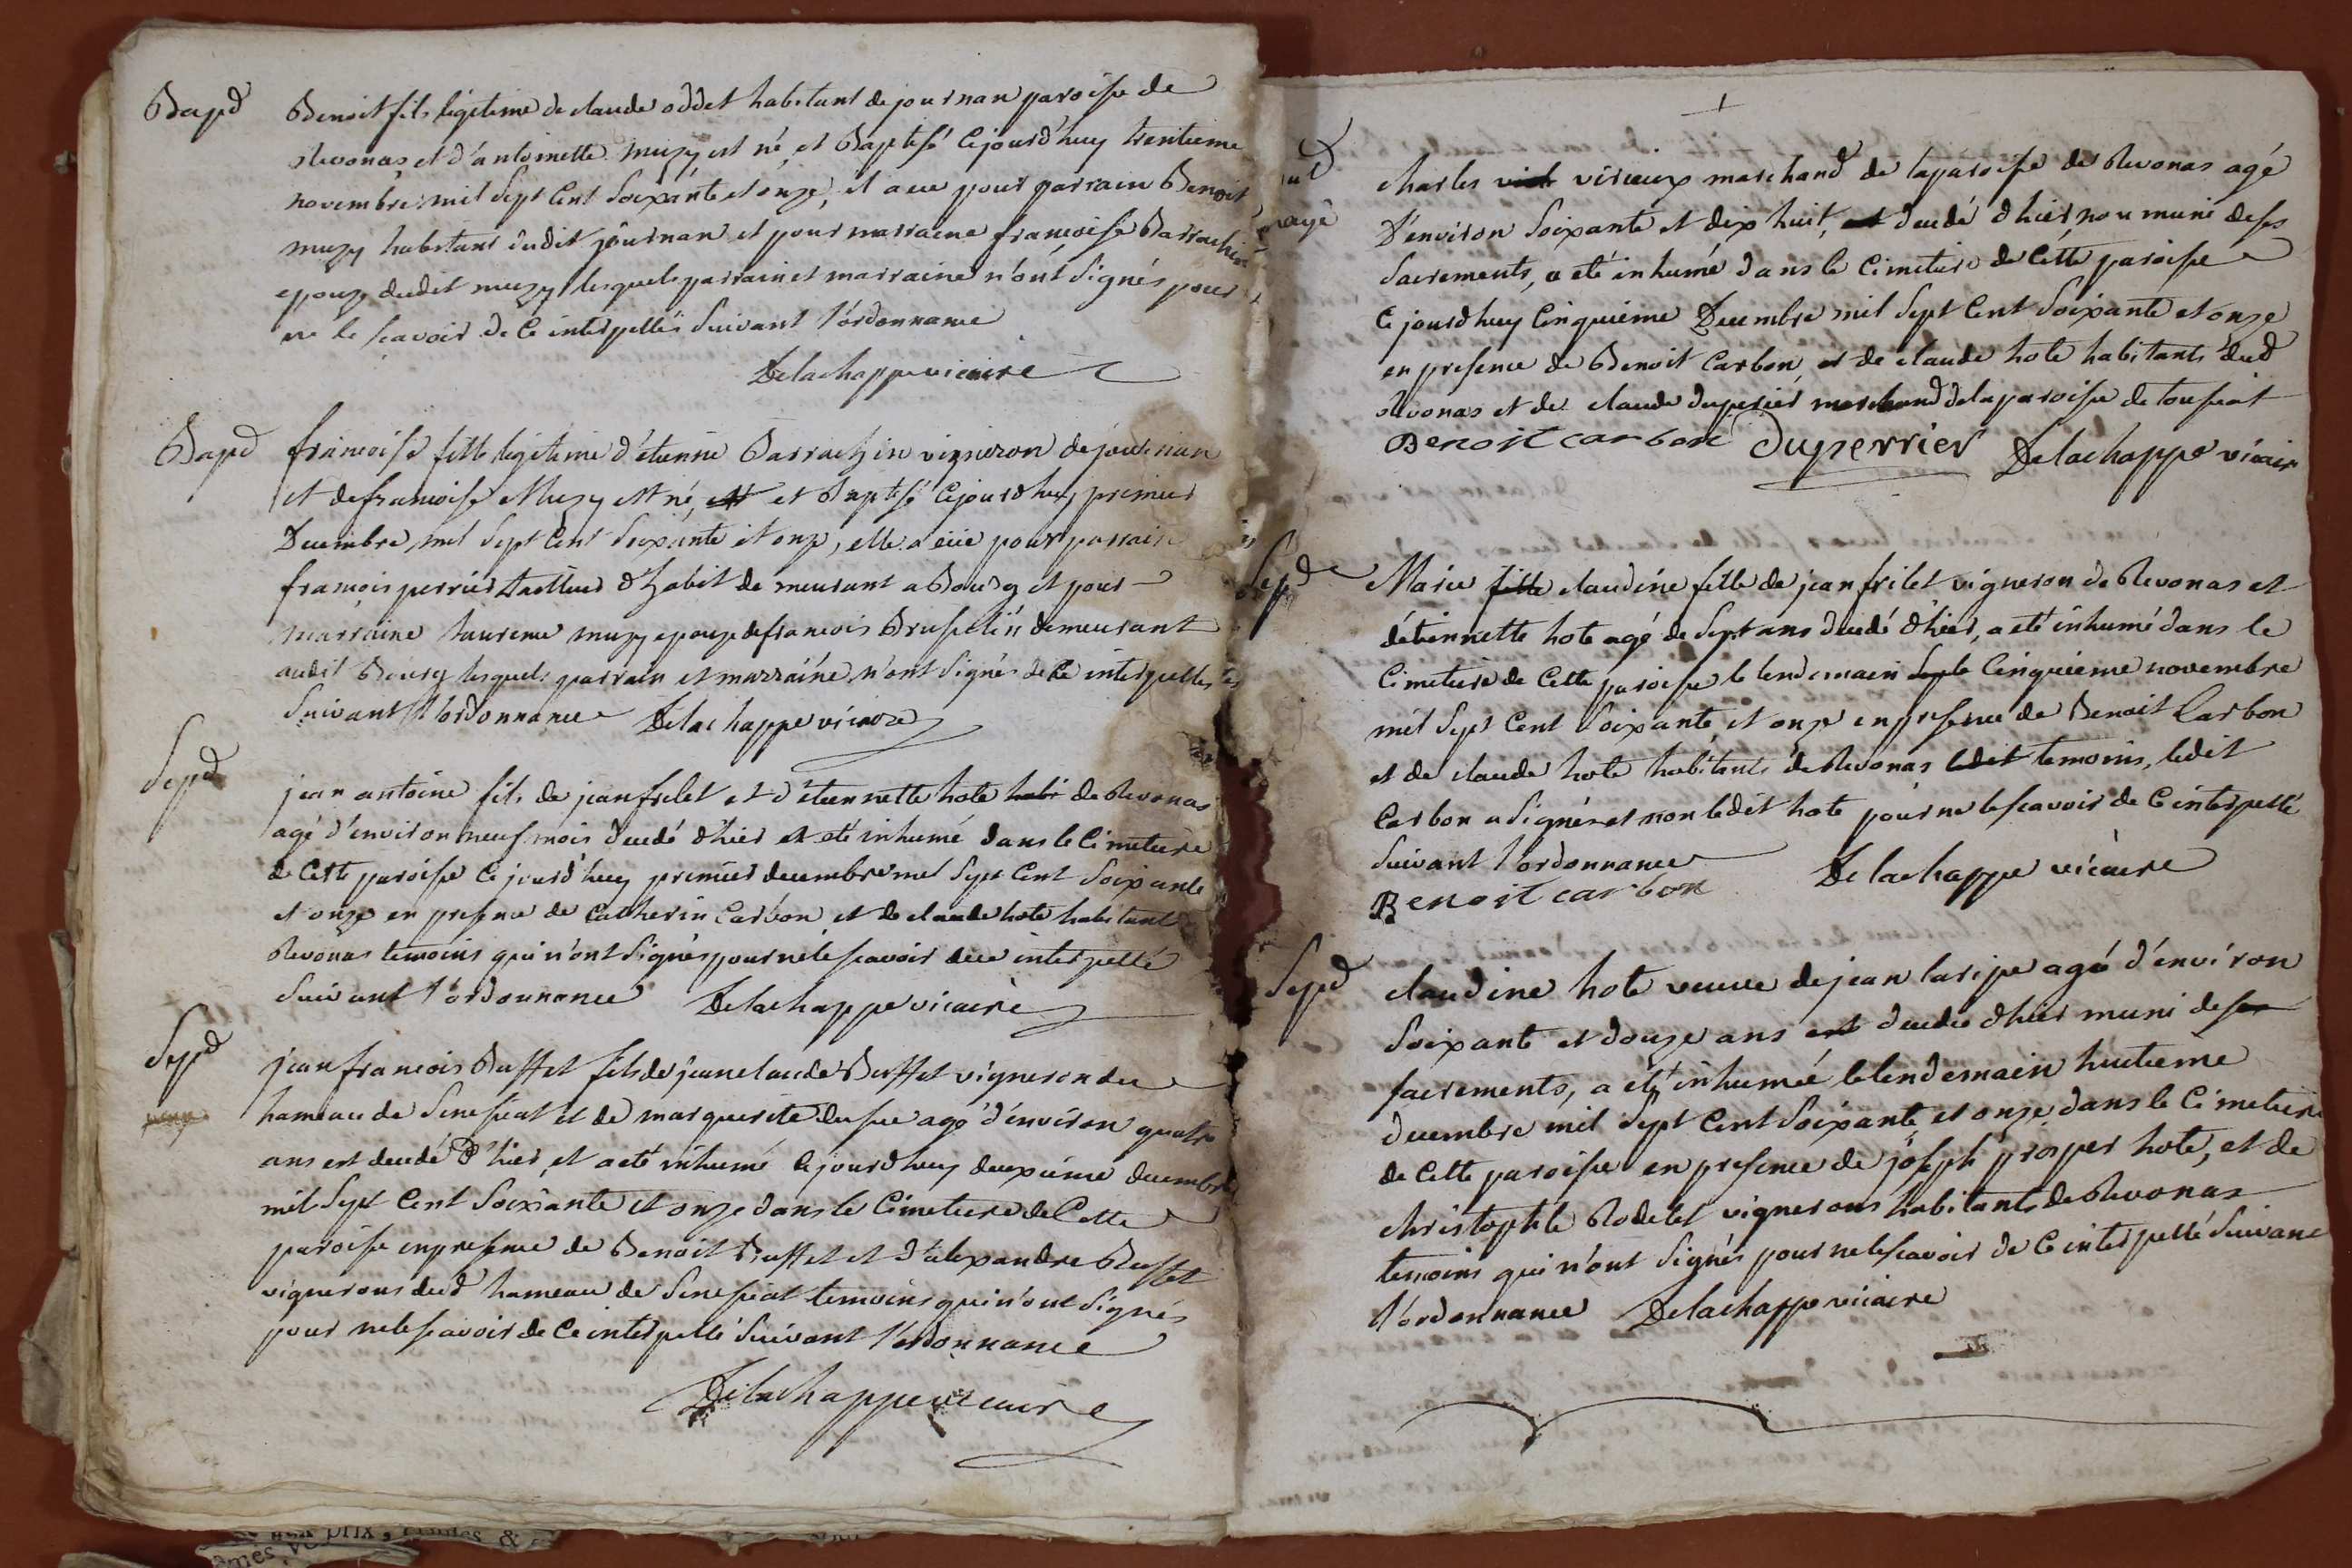 Bapd
Benoit fils légitime de claude oddet habitant de journan paroisse de
Revonas et d'antoinette muzy est né, et Baptisé Cejourd'huy trentieme
novembre mil Sept Cent Soixante et onze, et a eu pour parrain Benoit
muzy habitant dudit journan et pour marraine francoise Barrachin
epouze dudit muzy lesquels parrain et marraine n'ont Signés pour
ne le scavoir de Ce interpellés Suivant l'ordonnance
Delachappe vicaire
Bapd
francoise fille légitime d'étienne Barrachin vigneron de journan
et de francoise Muzy est né, est et Baptisé Cejourdhuy premier
Decembre mil Sept Cent Soixante et onze, elle a eüe pour parrain
francois perrier tailleur d'habit demeurant a Bourg et pour
marraine laurence muzy epouze de francois demeurant
audit Bourg lesquels parrain et marraine n'ont Signés de Ce interpellés
Suivant l'ordonnance Delachappe vicaire
Sepd
jean antoine fils de jean frilet et d'étiennette hote habi de Revonas
agé d'environ neuf mois decedé d'hier et eté inhumé dans le Cimetiere
de Cette paroisse Cejourd'huy premier decembre mil Sept Cent Soixante
et onze en presence de Catherin Carbon et de claude hote habitant
Revonas temoins qui n'ont Signés pour ne le scavoir de ce interpellé
Suivant l'ordonnance Delachappe vicaire
Sepd
jean francois Buffet fils de jean claude Buffet vigneron du
hameau de Senissiat et de marguerite agé d'environ quatre
ans est decedé d'hier, et a eté inhumé Cejourdhuy deuxieme decembre
mil Sept Cent Soixante et onze dans le Cimetiere de Cette
paroisse en presence de Benoit Buffet et d'alexandre Buffet
vignerons dud hameau de Senissiat temoins qui n'ont Signés
pour ne le scavoir de Ce interpellé Suivant l'ordonnance
Delachappe vicaire
charles virieux marchand de la paroisse de Revonas agé
D'environ Soixante et dix huit, est decedé d'hier, non muni de ses
Sacrements, a eté inhumé dans le Cimetiere de Cette paroisse
Ce jourdhuy Cinquieme Decembre mil Sept Cent Soixante et onze
en presence de Benoit Carbon, et de claude hote habitants dud
Revonas et de claude duperier marchand de la paroisse de toussiat
Benoit carbon Duperrier Delachappe vicaire
Sepd
Marie fille claudine fille de jean frilet vigneron de Revonas et
détiennette hote agé de Sept ans decedé d'hier, a eté inhumé dans le
Cimetiere de Cette paroisse le lendemain Cinquieme novembre
mil Sept Cent Soixante et onze en presence de Benoit Carbon
et de claude hote habitants de Revonas ledit temoins, ledit
Carbon a Signés et non ledit hote pour ne le scavoir de Ce interpellé
Suivant l'ordonnance
Benoit carbon Delachappe vicaire
Sepd
claudine hote veuve de jean agé d'environ
Soixante et douze ans est decedee d'hier muni de ses
sacrements, a été inhumée le lendemain huitieme
decembre mil Sept Cent Soixante et onze dans le Cimetiere
de Cette paroisse en presence de joseph prosper hote, et de
christophle Rodelet vignerons habitants de Revonas
temoins qui n'ont Signés pour ne le scavoir de Ce interpellé Suivant
l'ordonnance Delachappe vicaire